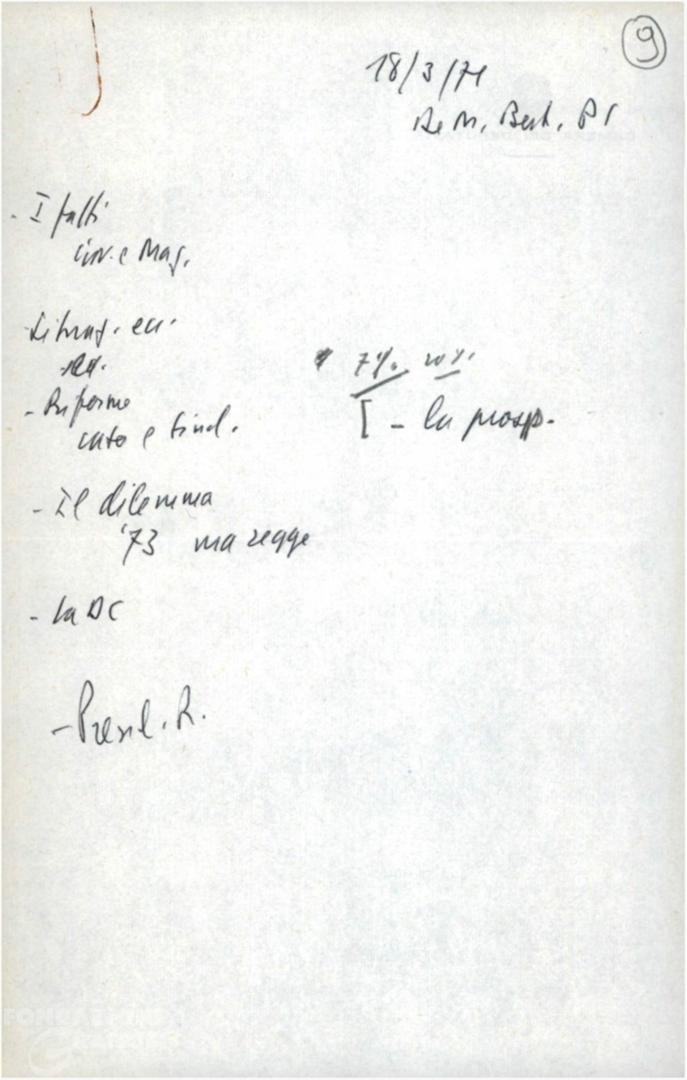 9
18/3/71
De M, Berl, PS
- I fatti
inv. e Mag.
ec.
- Riforme
e sind.
7%. 20%.
[ - la prosp.
- Il dilemma
'73 ma regge
- la DC
- Presid. R.